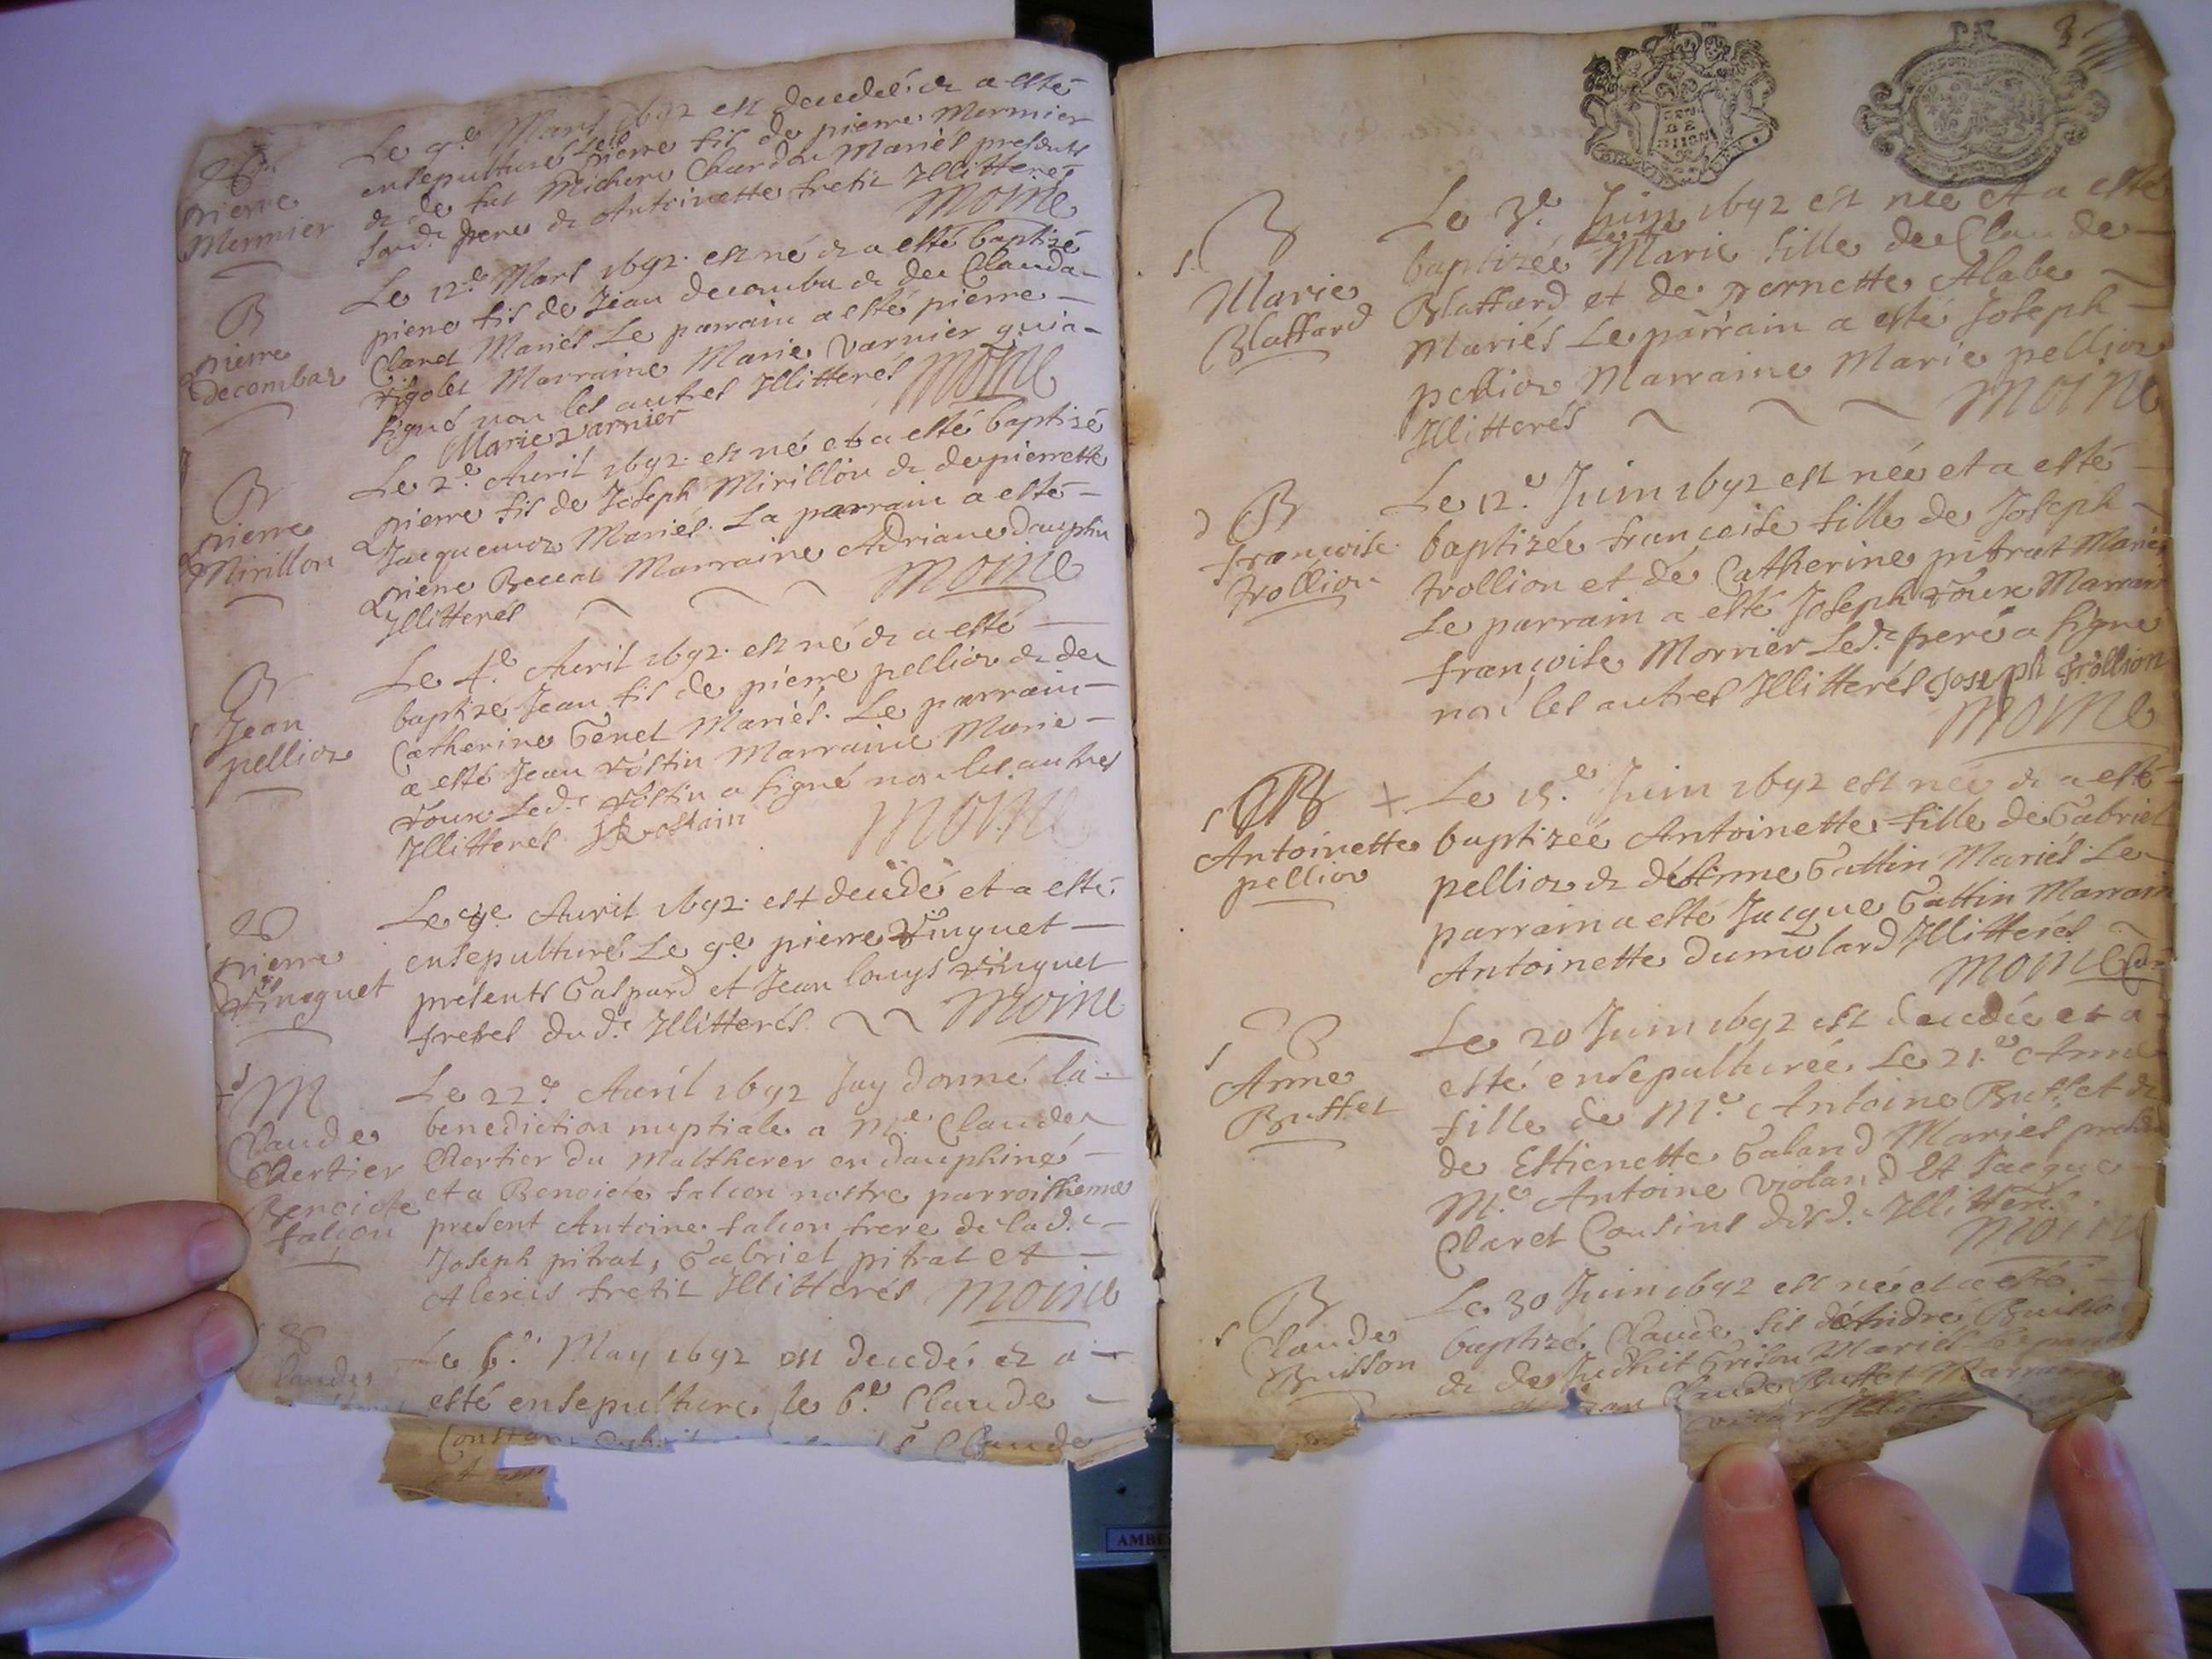 Pierre
Mermier
Le 9.e Mars 1692 est decedé & a esté
ensepulturé Pierre fils de pierre Mermier
& de fut Michere Chardon Mariés presents
frere & Antoinette fretit Illitterés
Moine
B
pierre
decombaz
Le 12.e Mars 1692. est né & a esté baptizé
pierre fils de Jean decomba & de Clauda
Claret Mariés Le parrain a esté pierre
rigolet Marraine Marie Varnier qui a
signé non les autres Illitterés Moine
Marie varnier
B
pierre
Mirillon
Le 2.e Auril 1692. est né et a esté baptizé
pierre fils de Joseph Mirillon & de pierrette
Jacquemoz Mariés. La parrain a esté
pierre Marraine Adriane dauphin
Illitterés Moine
B
Jean
pellioz
Le 4.e Auril 1692. est né & a esté
baptizé Jean fils de pierre pellioz & de
Catherine Genet Mariés. Le parrain
a esté Jean rostin Marraine Marie
roux Led. rostin a signé non les autres
Illitteres J Rostain Moine
pierre
Vinguet
Le 9.e Auril 1692. est decedé et a esté
ensepulturé Le 9.e pierre Vinguet
presents Gaspard et Jean louys vinguet
freres du d. Illitterés Moine
M
Claude
Chertier
Benoicte
falcon
Le 22.e Auril 1692 Jay donné la
benediction nuptiale a M.e Claude
Chertier du Maltherer en dauphiné
et a Benoicte falcon nostre parroissiene
present Antoine falcon frere de lad.
Joseph pitrat, Gabriel pitrat et
Alexis fretit Illitterés Moine
Claude
Le 6.e May 1692 est decedé & a
esté ensepulturé le 6.e Claude
Claude
3
B
Marie
Blaffard
Le 3.e Juin 1692 est née et a esté
baptizée Marie fille de Claude
Blaffard et de pernette Alabe
Mariés Le parrain a esté Joseph
pellioz Marraine Marie pellioz
Illitterés Moine
B
françoise
trollion
Le 12.e Juin 1692 est née et a esté
baptizée françoise fille de Joseph
trollion et de Catherine pitrat Mariés
Le parrain a esté Joseph roux Marrain
françoise Morrier Led. pere a signe
non les autres Illitterés Joseph trollion
Moine
B
Antoinette
pellioz
Le 15.e Juin 1692 est née & a esté
baptizée Antoinette fille de Gabriel
pellioz & détinne Gattin Mariés Le
parrain a esté Jacque Gattin Marrain
Antoinette dumolard Illitterés
Moine
Anne
Buffet
Le 20 Juin 1692 est decedée et a
esté ensepulturée Le 21.e Anne
fille de M.e Antoine Buffet &
de Estienette Galand Mariés
M.e Antoine violand Et Jacque
Claret Cousins Illitterés
Moine
B
Claude
Buisson
Le 30 Juin 1692 est né et a esté
baptizé Claude fils d'Andre Buisson
& de Judhit Grison Mariés
Claude Buffet